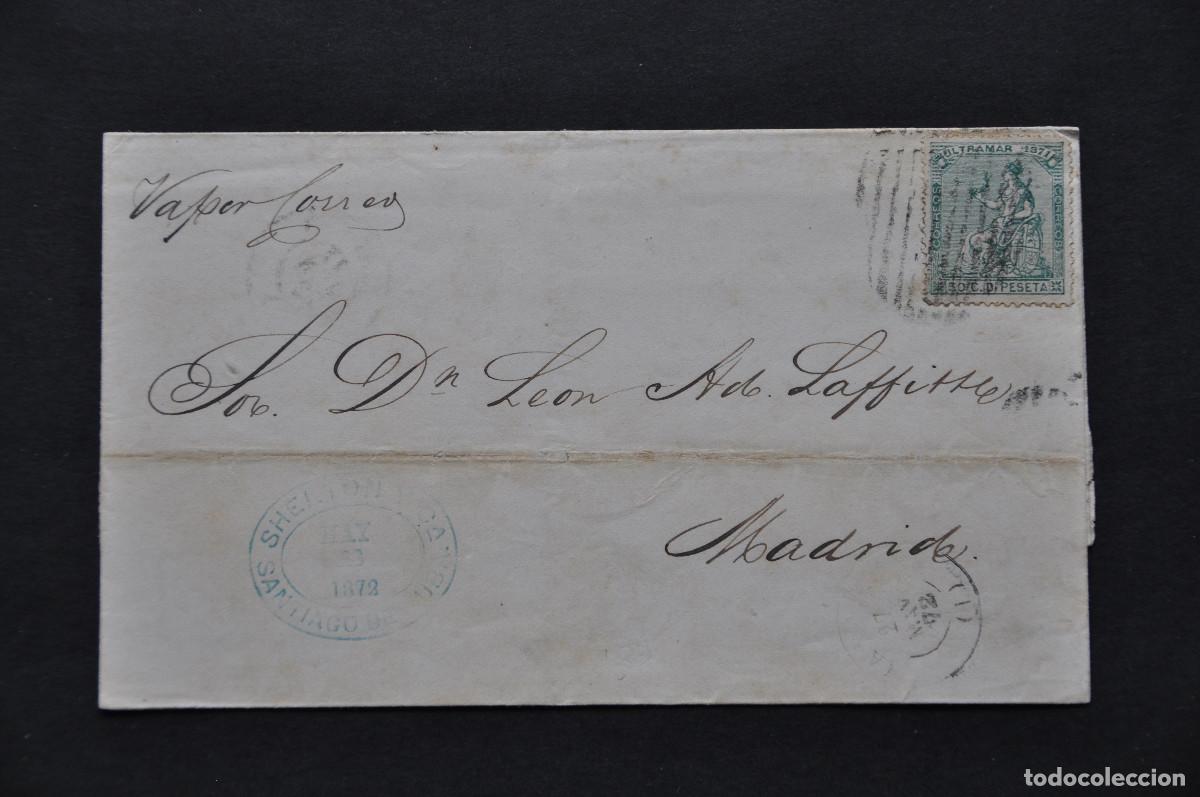 Vapor Correo
ULTRAMAR 1871
CORREOS
CORREOS
50 C. D PESETA
Sor. Dn Leon Ad. Laffitte
Madrid.
SHELTON
MAY
23
1872
SANTIAGO DE
(1)
24
MAY
todocoleccion